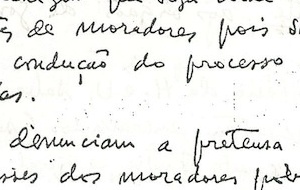 de moradores pois
condução do processo
as.
denunciam a pretensa
dos moradores pob